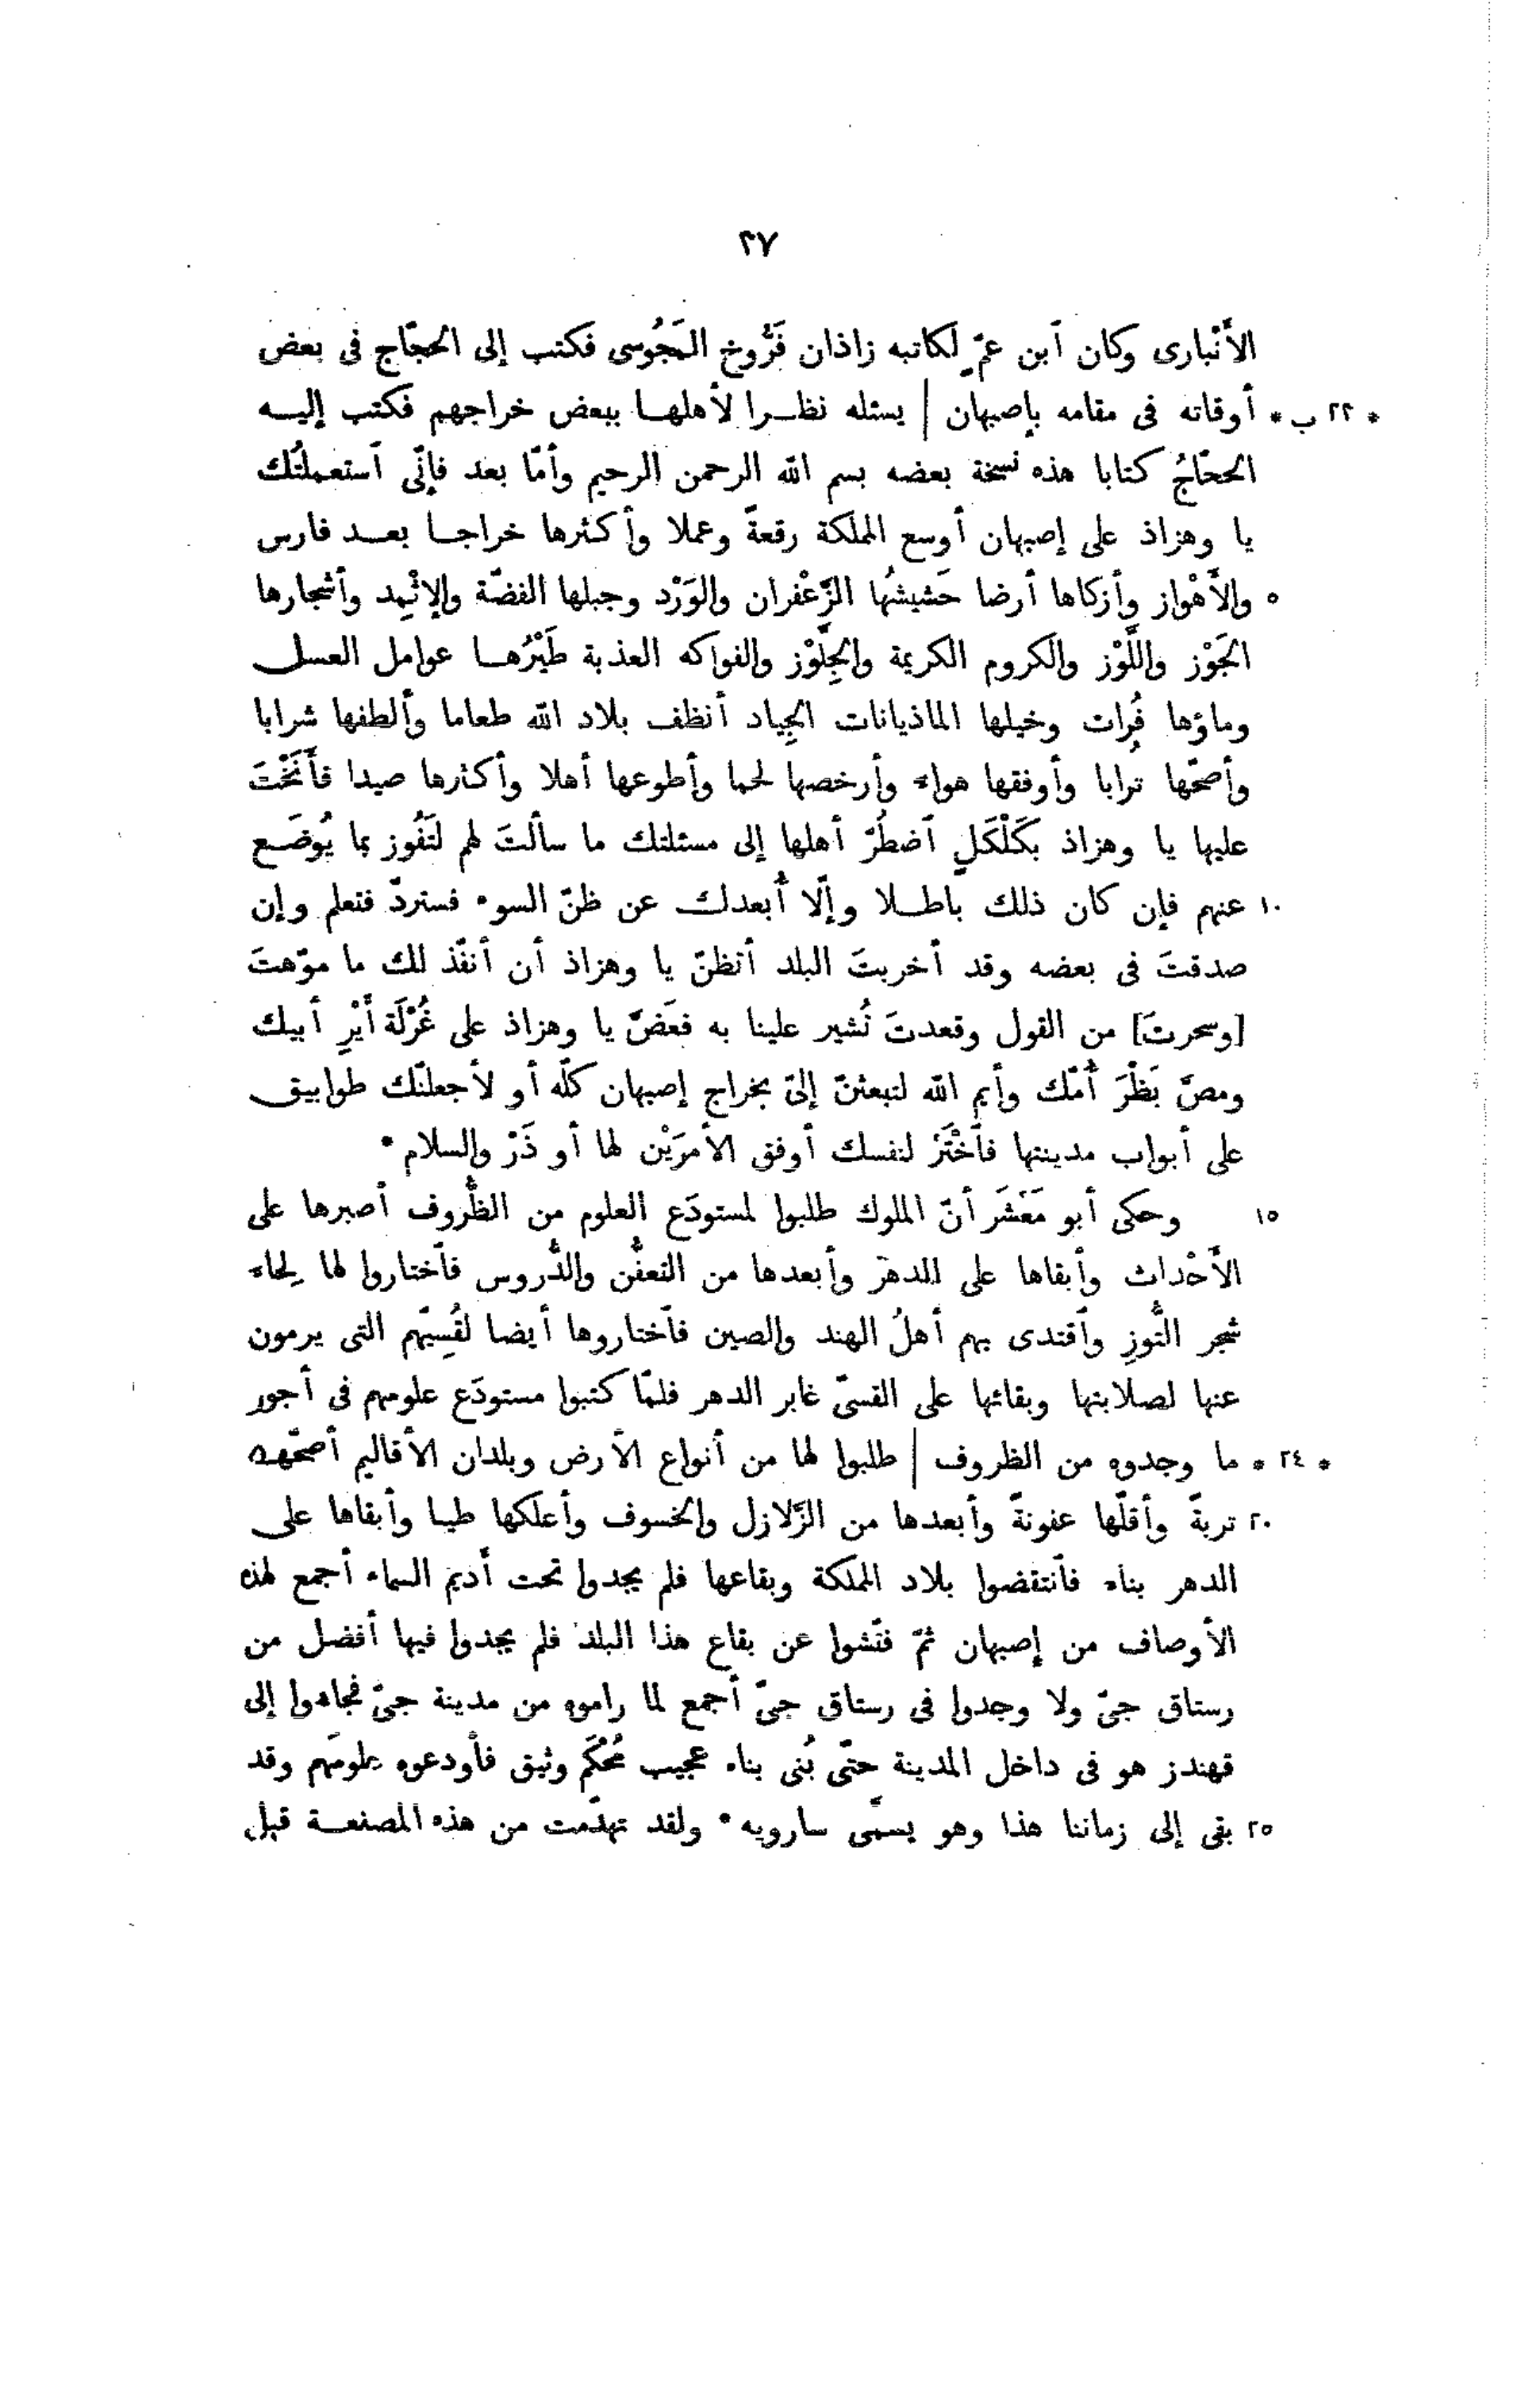 ٣٧
الأَنْبارى وكان آبن عمٍّ لكاتبه زاذان فَرُّوخ المَجُوسى فكتب إلى الحجّاج فى بعض
* ٢٣ ب * أوقاته فى مقامه بإصبهان | يسئله نظرا لأهلها ببعض خراجهم فكتب إليه
الحجّاجُ كتابا هذه نسخة بعضه بسم الله الرحمن الرحيم وأمّا بعد فإنّى آستعملتُك
يا وهزاذ على إصبهان أوسع المملكة رقعةً وعملا وأكثرها خراجا بعد فارس
٥ والأَهْواز وأزكاها أرضا حَشيشُها الزَّعْفران والوَرْد وجبلها الفضّة والإثْمِد وأشجارها
الجَوْز واللَّوْز والكروم الكريمة والجِلَّوْز والفواكه العذبة طَيْرُها عوامل العسل
وماؤها فُرات وخيلها الماذيانات الجِياد أنظف بلاد الله طعاما وألطفها شرابا
وأصحّها ترابا وأوفقها هواء وأرخصها لحما وأطوعها أهلا وأكثرها صيدا فأَنَخْتَ
عليها يا وهزاذ بكَلْكَلٍ آضطُرّ أهلها إلى مسئلتك ما سألتَ لهم لتَفُوز بما يُوضَع
١٠ عنهم فإن كان ذلك باطلا وإلّا أُبعدك عن ظنّ السوء فستردّ فتعلم وإن
صدقتَ فى بعضه وقد أخربتَ البلد أتظنّ يا وهزاذ أن أنفّذ لك ما موّهتَ
[وسحرتَ] من القول وقعدتَ تُشير علينا به فعَضَّ يا وهزاذ على غُرْلَة أَيْرِ أبيك
ومصَّ بَظْرَ أُمّك وأيم الله لتبعثنّ إلىّ بخراج إصبهان كلّه أو لأجعلنّك طوابيق
على أبواب مدينتها فآخْتَرْ لنفسك أوفق الأمرَيْن لها أو ذَرْ والسلام *
١٥ وحكى أبو مَعْشَر أنّ الملوك طلبوا لمستودَع العلوم من الظُّروف أصبرها على
الأَحْداث وأبقاها على الدهر وأبعدها من التعفُّن والدُّروس فآختاروا لها لِحاء
شجر التُّوزِ وآقتدى بهم أهلُ الهند والصين فآختاروها أيضا لقُسِيّهم التى يرمون
عنها لصلابتها وبقائها على القسىّ غابر الدهر فلمّا كتبوا مستودَع علومهم فى أجور
* ٢٤ * ما وجدوه من الظروف | طلبوا لها من أنواع الأرض وبلدان الأقاليم أصحّها
٢٠ تربةً وأقلّها عفونةً وأبعدها من الزَّلازل والخسوف وأعلكها طيبا وأبقاها على
الدهر بناء فآنتقضوا بلاد المملكة وبقاعها فلم يجدوا تحت أديم السماء أجمع لهذه
الأوصاف من إصبهان ثمّ فتّشوا عن بقاع هذا البلد فلم يجدوا فيها أفضل من
رستاق جىّ ولا وجدوا فى رستاق جىّ أجمع لما راموه من مدينة جىّ فجاءوا إلى
قهندز هو فى داخل المدينة حتّى بُنى بناء عجيب مُحْكَم وثيق فأودعوه علومَهم وقد
٢٥ بقى إلى زماننا هذا وهو يسمّى سارويه * ولقد تهدّمت من هذه المصنعة قبل